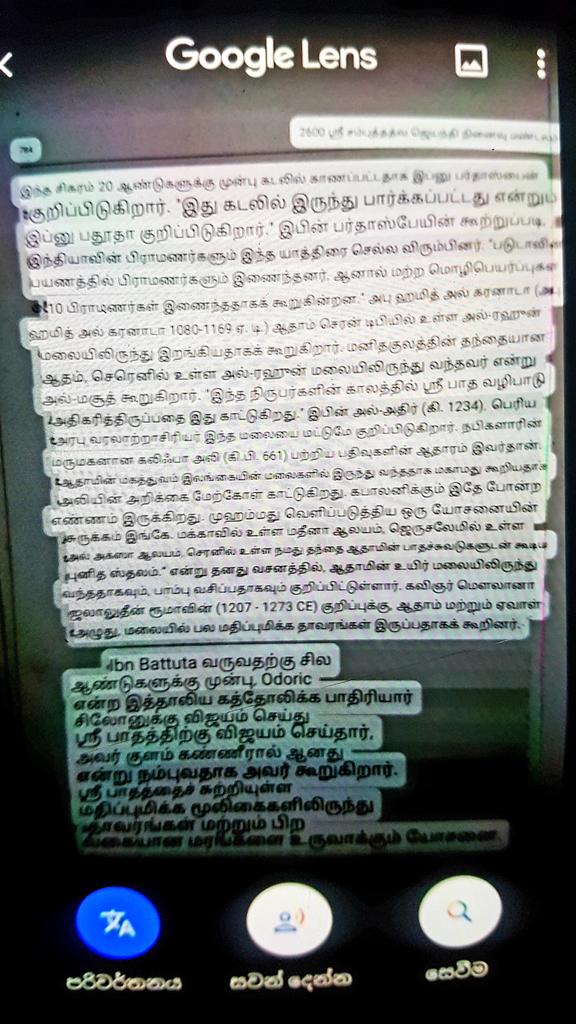 Google Lens
2600 ஸ்ரீ சம்புத்தத்வ ஜெயந்தி நினைவு மண்டலம்
784
இந்த சிகரம் 20 ஆண்டுகளுக்கு முன்பு கடலில் காணப்பட்டதாக இபனு பர்தாஸ்பைன்
குறிப்பிடுகிறார். "இது கடலில் இருந்து பார்க்கப்பட்டது என்றும்
இப்னு பதூதா குறிப்பிடுகிறார்." இபின் பர்தாஸ்பேயின் கூற்றுப்படி,
இந்தியாவின் பிராமணர்களும் இந்த யாத்திரை செல்ல விரும்பினர். "படுடாவின்
பயணத்தில் பிராமணர்களும் இணைந்தனர், ஆனால் மற்ற மொழிபெயர்ப்புகள்
10 பிராமணர்கள் இணைந்ததாகக் கூறுகின்றன." அபு ஹமித் அல் கரனாடா (அபு
ஹமித் அல் கரனாடா 1080-1169 ஏ. டி.) ஆதாம் செரன் டிபியில் உள்ள அல்-ரஹுன்
மலையிலிருந்து இறங்கியதாகக் கூறுகிறார். மனிதகுலத்தின் தந்தையான
ஆதம், செரெனில் உள்ள அல்-ரஹுன் மலையிலிருந்து வந்தவர் என்று
அல்-மசூத் கூறுகிறார். "இந்த நிருபர்களின் காலத்தில் ஸ்ரீ பாத வழிபாடு
அதிகரித்திருப்பதை இது காட்டுகிறது." இபின் அல்-அதிர் (கி. 1234), பெரிய
அரபு வரலாற்றாசிரியர் இந்த மலையை மட்டுமே குறிப்பிடுகிறார். நபிகளாரின்
மருமகனான கலிஃபா அலி (கி.பி. 661) பற்றிய பதிவுகளின் ஆதாரம் இவர்தான்.
ஆதாமின் மகத்துவம் இலங்கையின் மலைகளில் இருந்து வந்ததாக மகாமது கூறியதாக
அலியின் அறிக்கை மேற்கோள் காட்டுகிறது. கபாலனிக்கும் இதே போன்ற
எண்ணம் இருக்கிறது. முஹம்மது வெளிப்படுத்திய ஒரு யோசனையின்
சுருக்கம் இங்கே. மக்காவில் உள்ள மதீனா ஆலயம், ஜெருசலேமில் உள்ள
அல் அக்ஸா ஆலயம், செரனில் உள்ள நமது தந்தை ஆதாமின் பாதச்சுவடுகளுடன் கூடிய
புனித ஸ்தலம்." என்று தனது வசனத்தில், ஆதாமின் உயிர் மலையிலிருந்து
வந்ததாகவும், பாம்பு வசிப்பதாகவும் குறிப்பிட்டுள்ளார். கவிஞர் மௌலானா
ஜலாலுதீன் ரூமாவின் (1207 - 1273 CE) குறிப்புக்கு, ஆதாம் மற்றும் ஏவாள்
அழுது, மலையில் பல மதிப்புமிக்க தாவரங்கள் இருப்பதாகக் கூறினர்.
Ibn Battuta வருவதற்கு சில
ஆண்டுகளுக்கு முன்பு, Odoric
என்ற இத்தாலிய கத்தோலிக்க பாதிரியார்
சிலோனுக்கு விஜயம் செய்து
ஸ்ரீ பாதத்திற்கு விஜயம் செய்தார்,
அவர் குளம் கண்ணீரால் ஆனது
என்று நம்புவதாக அவர் கூறுகிறார்.
ஸ்ரீ பாதத்தைச் சுற்றியுள்ள
மதிப்புமிக்க மூலிகைகளிலிருந்து
தாவரங்கள் மற்றும் பிற
வகையான மரங்களை உருவாக்கும் யோசனை.
පරිවර්තනය
සවන් දෙන්න
සෙවීම